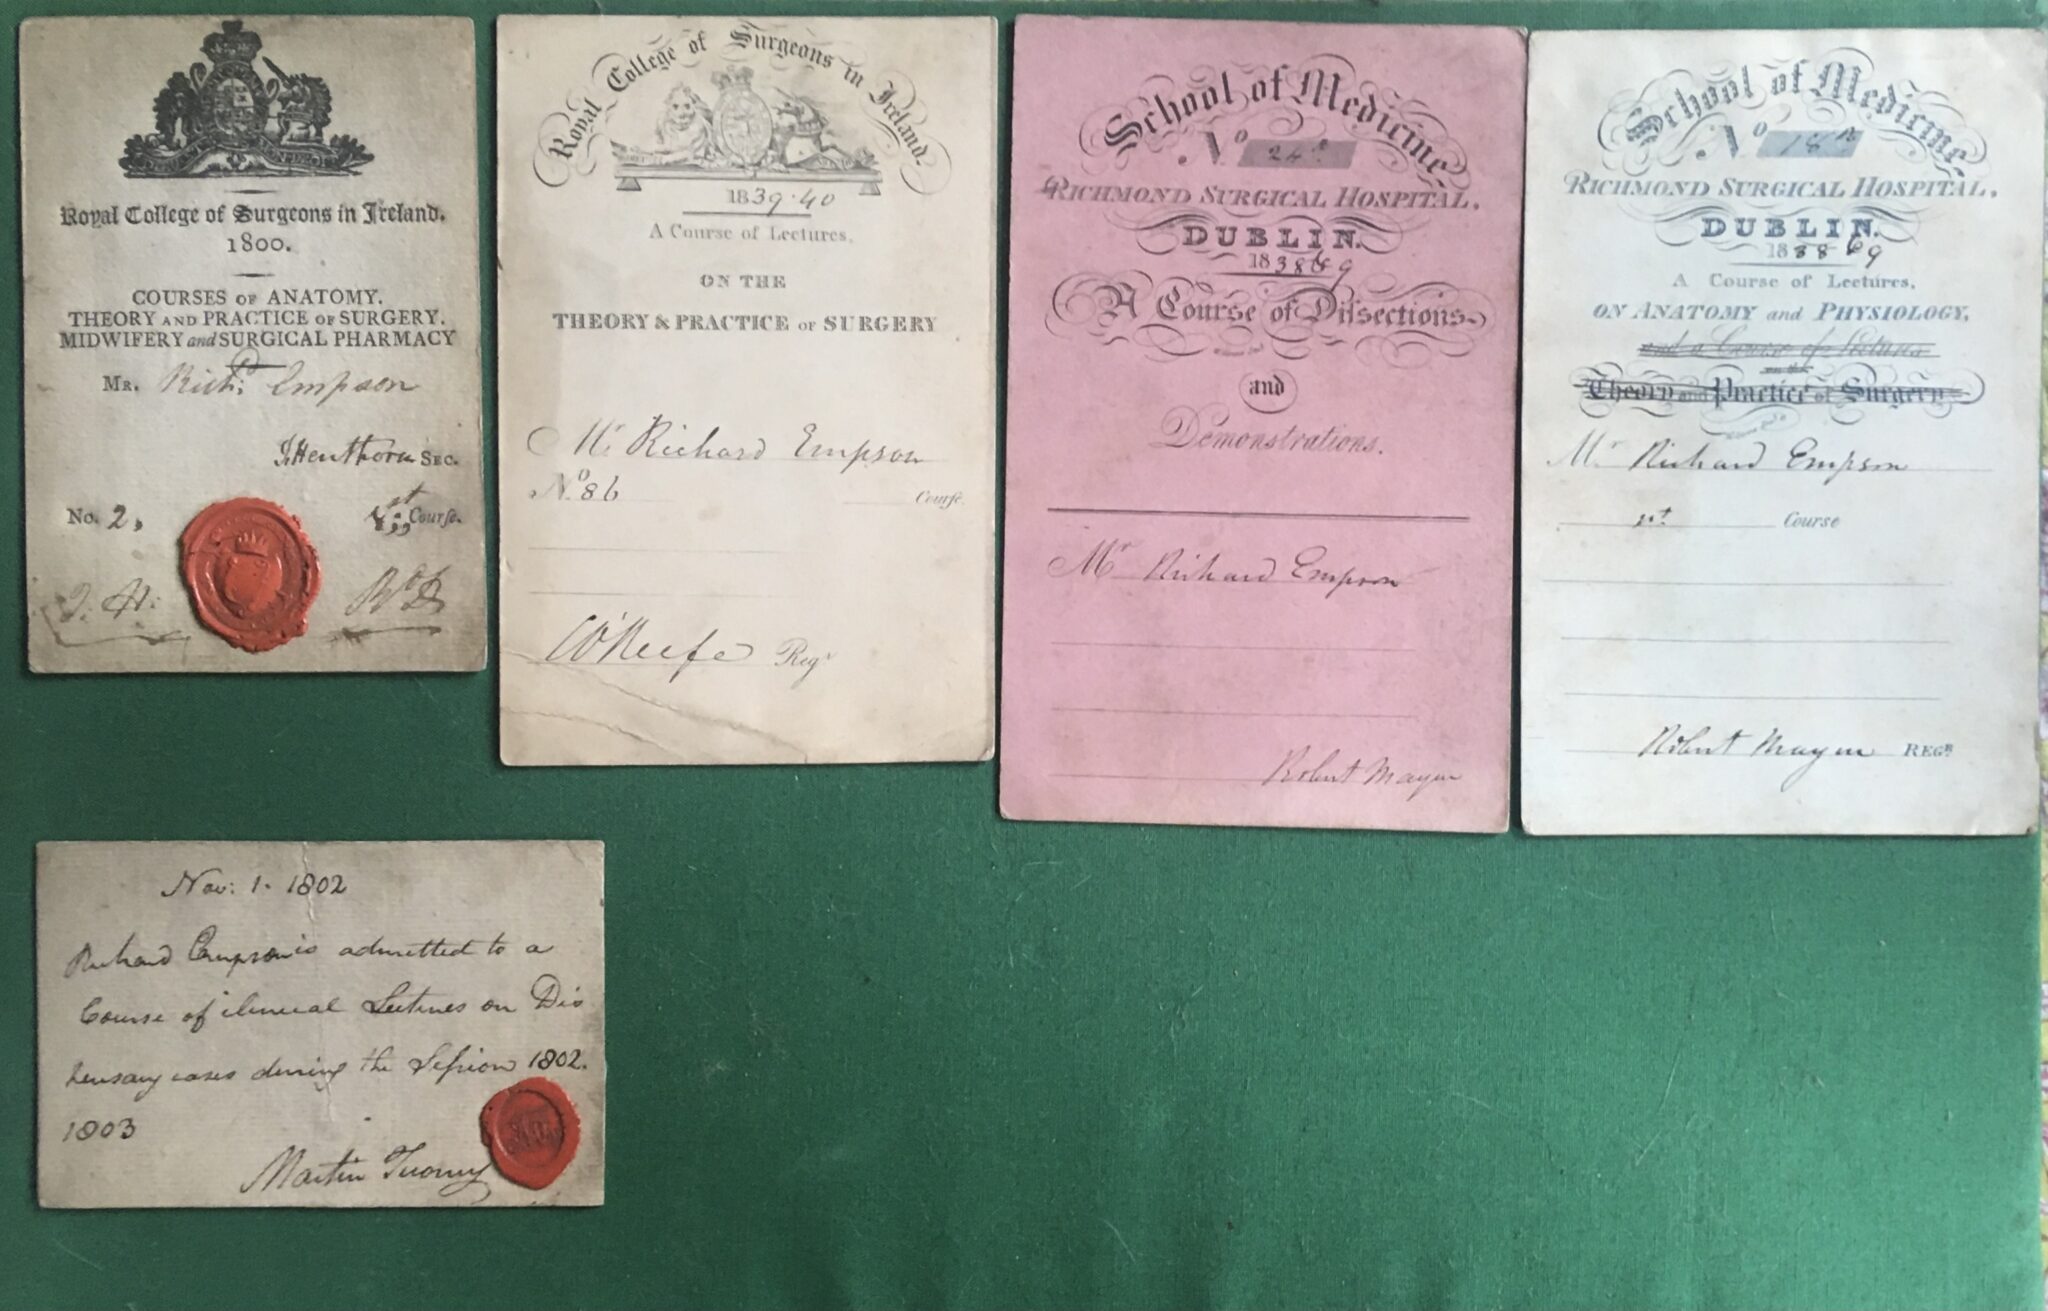 Royal College of Surgeons in Ireland.
1800.
COURSES OF ANATOMY.
THEORY AND PRACTICE OF SURGERY.
MIDWIFERY and SURGICAL PHARMACY
MR. Richd. Empson
J. Henthorn SEC.
No. 2,
1st Course.
J. H.
Royal College of Surgeons in Ireland.
1839.40
A Course of Lectures,
ON THE
THEORY & PRACTICE OF SURGERY
Mr. Richard Empson
No. 86
Course.
O'Keefe Regr
School of Medicine
No 24
RICHMOND SURGICAL HOSPITAL,
DUBLIN.
1838 & 9
A Course of Dissections
and
Demonstrations.
Mr Richard Empson
Robert Mayne
School of Medicine
No 18
RICHMOND SURGICAL HOSPITAL,
DUBLIN.
1838 & 9
A Course of Lectures,
ON ANATOMY and PHYSIOLOGY,
and a Course of Lectures
on the
Theory and Practice of Surgery
Mr Richard Empson
1st Course
Robert Mayne REGR.
Nov: 1. 1802
Richard Empson is admitted to a
Course of clinical Lectures on Dis
pensary cases during the Session 1802.
1803
Martin Tuomy